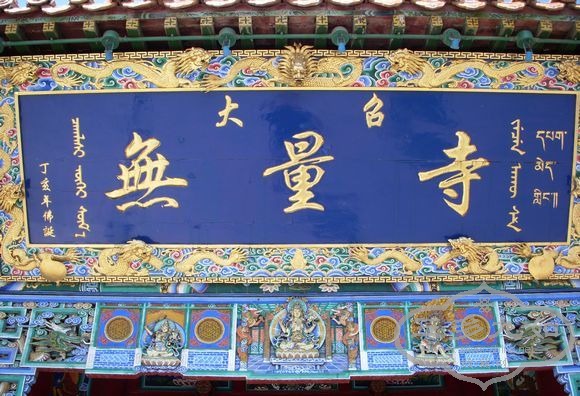 大召
無量寺
丁亥年佛誕
དཔག་
མེད་
གླིང༎